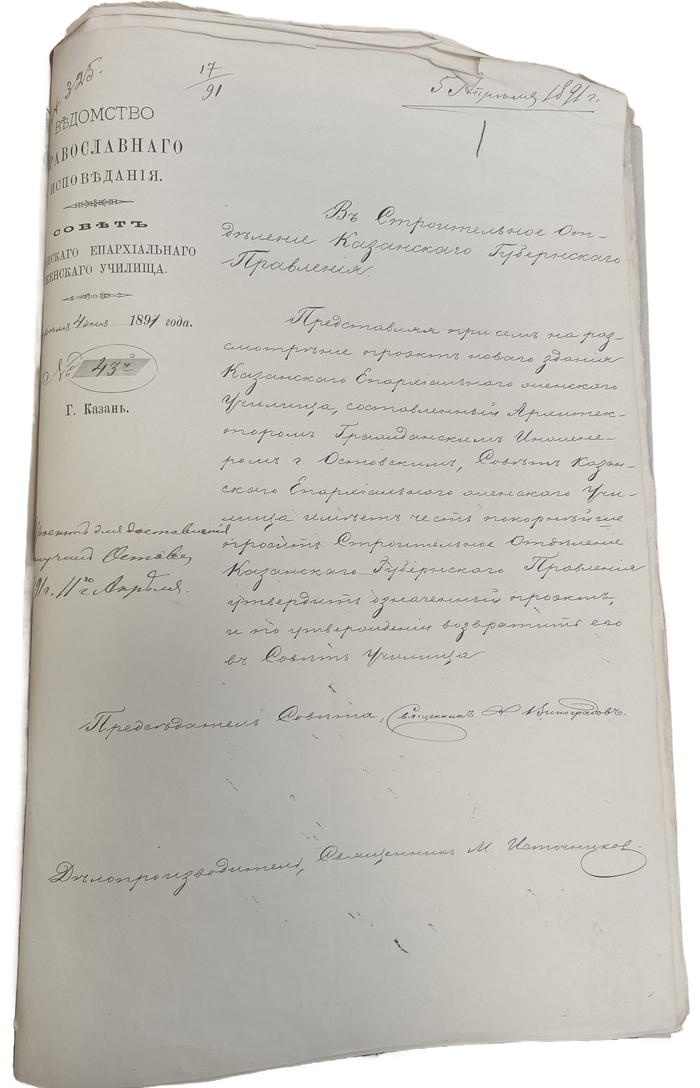 325.
17/91
5 Апрѣля 1891 г.
1
ВѢДОМСТВО
ПРАВОСЛАВНАГО
ИСПОВѢДАНІЯ.
СОВѢТЪ
КАЗАНСКАГО ЕПАРХІАЛЬНАГО
ЖЕНСКАГО УЧИЛИЩА.
Апрѣля 4 дня 1891 года.
№ 43й
Г. Казань.
Въ Строительное От-
дѣленіе Казанскаго Губернскаго
Правленія.
Представляя при семъ на раз-
смотрѣніе проэктъ новаго зданія
Казанскаго Епархіальнаго женскаго
Училища, составленный Архитек-
торомъ Гражданскимъ Инжене-
ромъ г. Остовскимъ, Совѣтъ Казан-
скаго Епархіальнаго женскаго Учи-
лища имѣетъ честь покорнѣйше
просить Строительное Отдѣленіе
Казанскаго Губернскаго Правленія
утвердить означенный проэктъ,
и по утвержденіи возвратить его
въ Совѣтъ Училища
Проектъ для доставленія
получилъ
91 г. 11го Апрѣля.
Предсѣдатель Совѣта, Священникъ Н. Виноградовъ.
Дѣлопроизводитель, Священникъ М. Источниковъ.